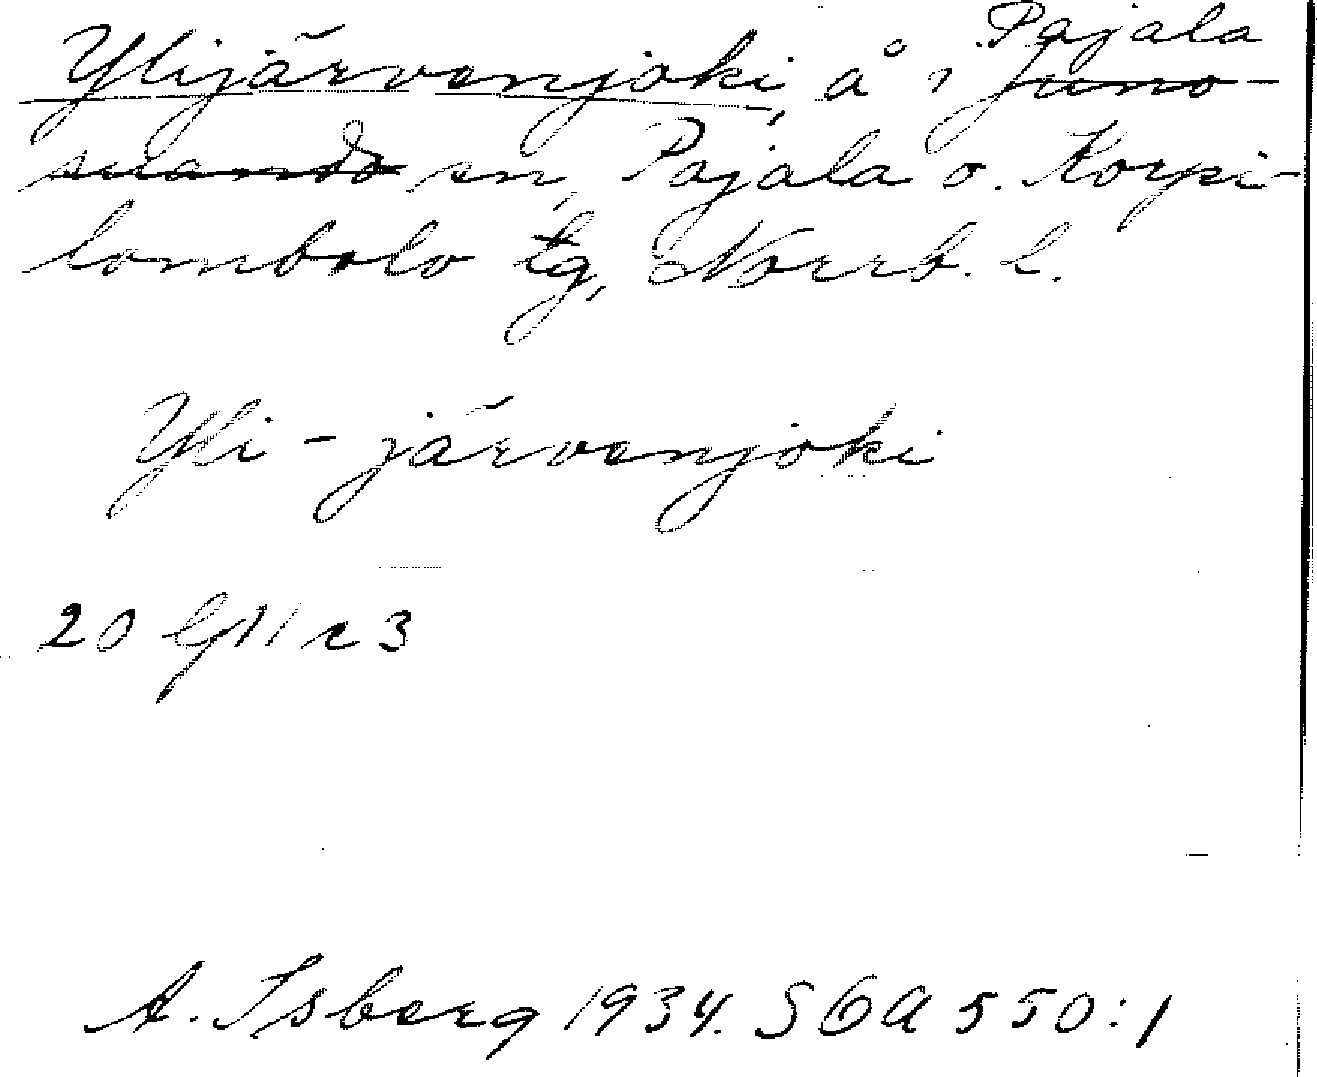 Pajala
Ylijärvenjoki, å i Juno-
suando sn, Pajala o. Korpi-
lombolo tg, Norrb. l.
Yli-järvenjoki
20
A. Isberg 1934. SOA 550:1